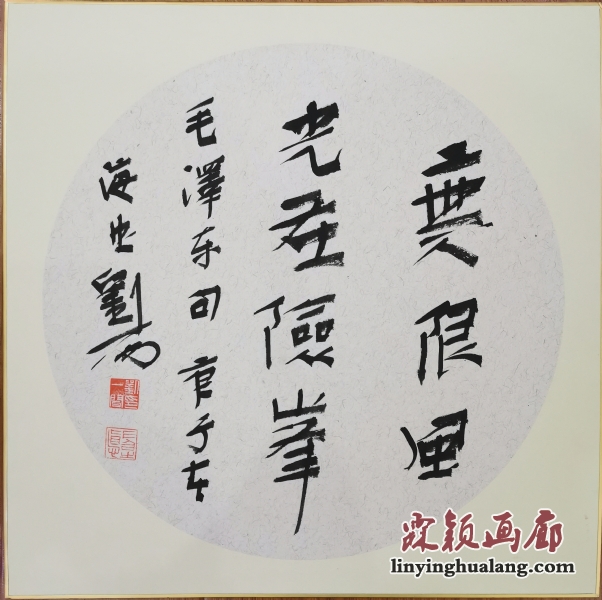 無限風
光在險峯
毛澤东句
海
劉
霖颖画廊
linyinghualang.com